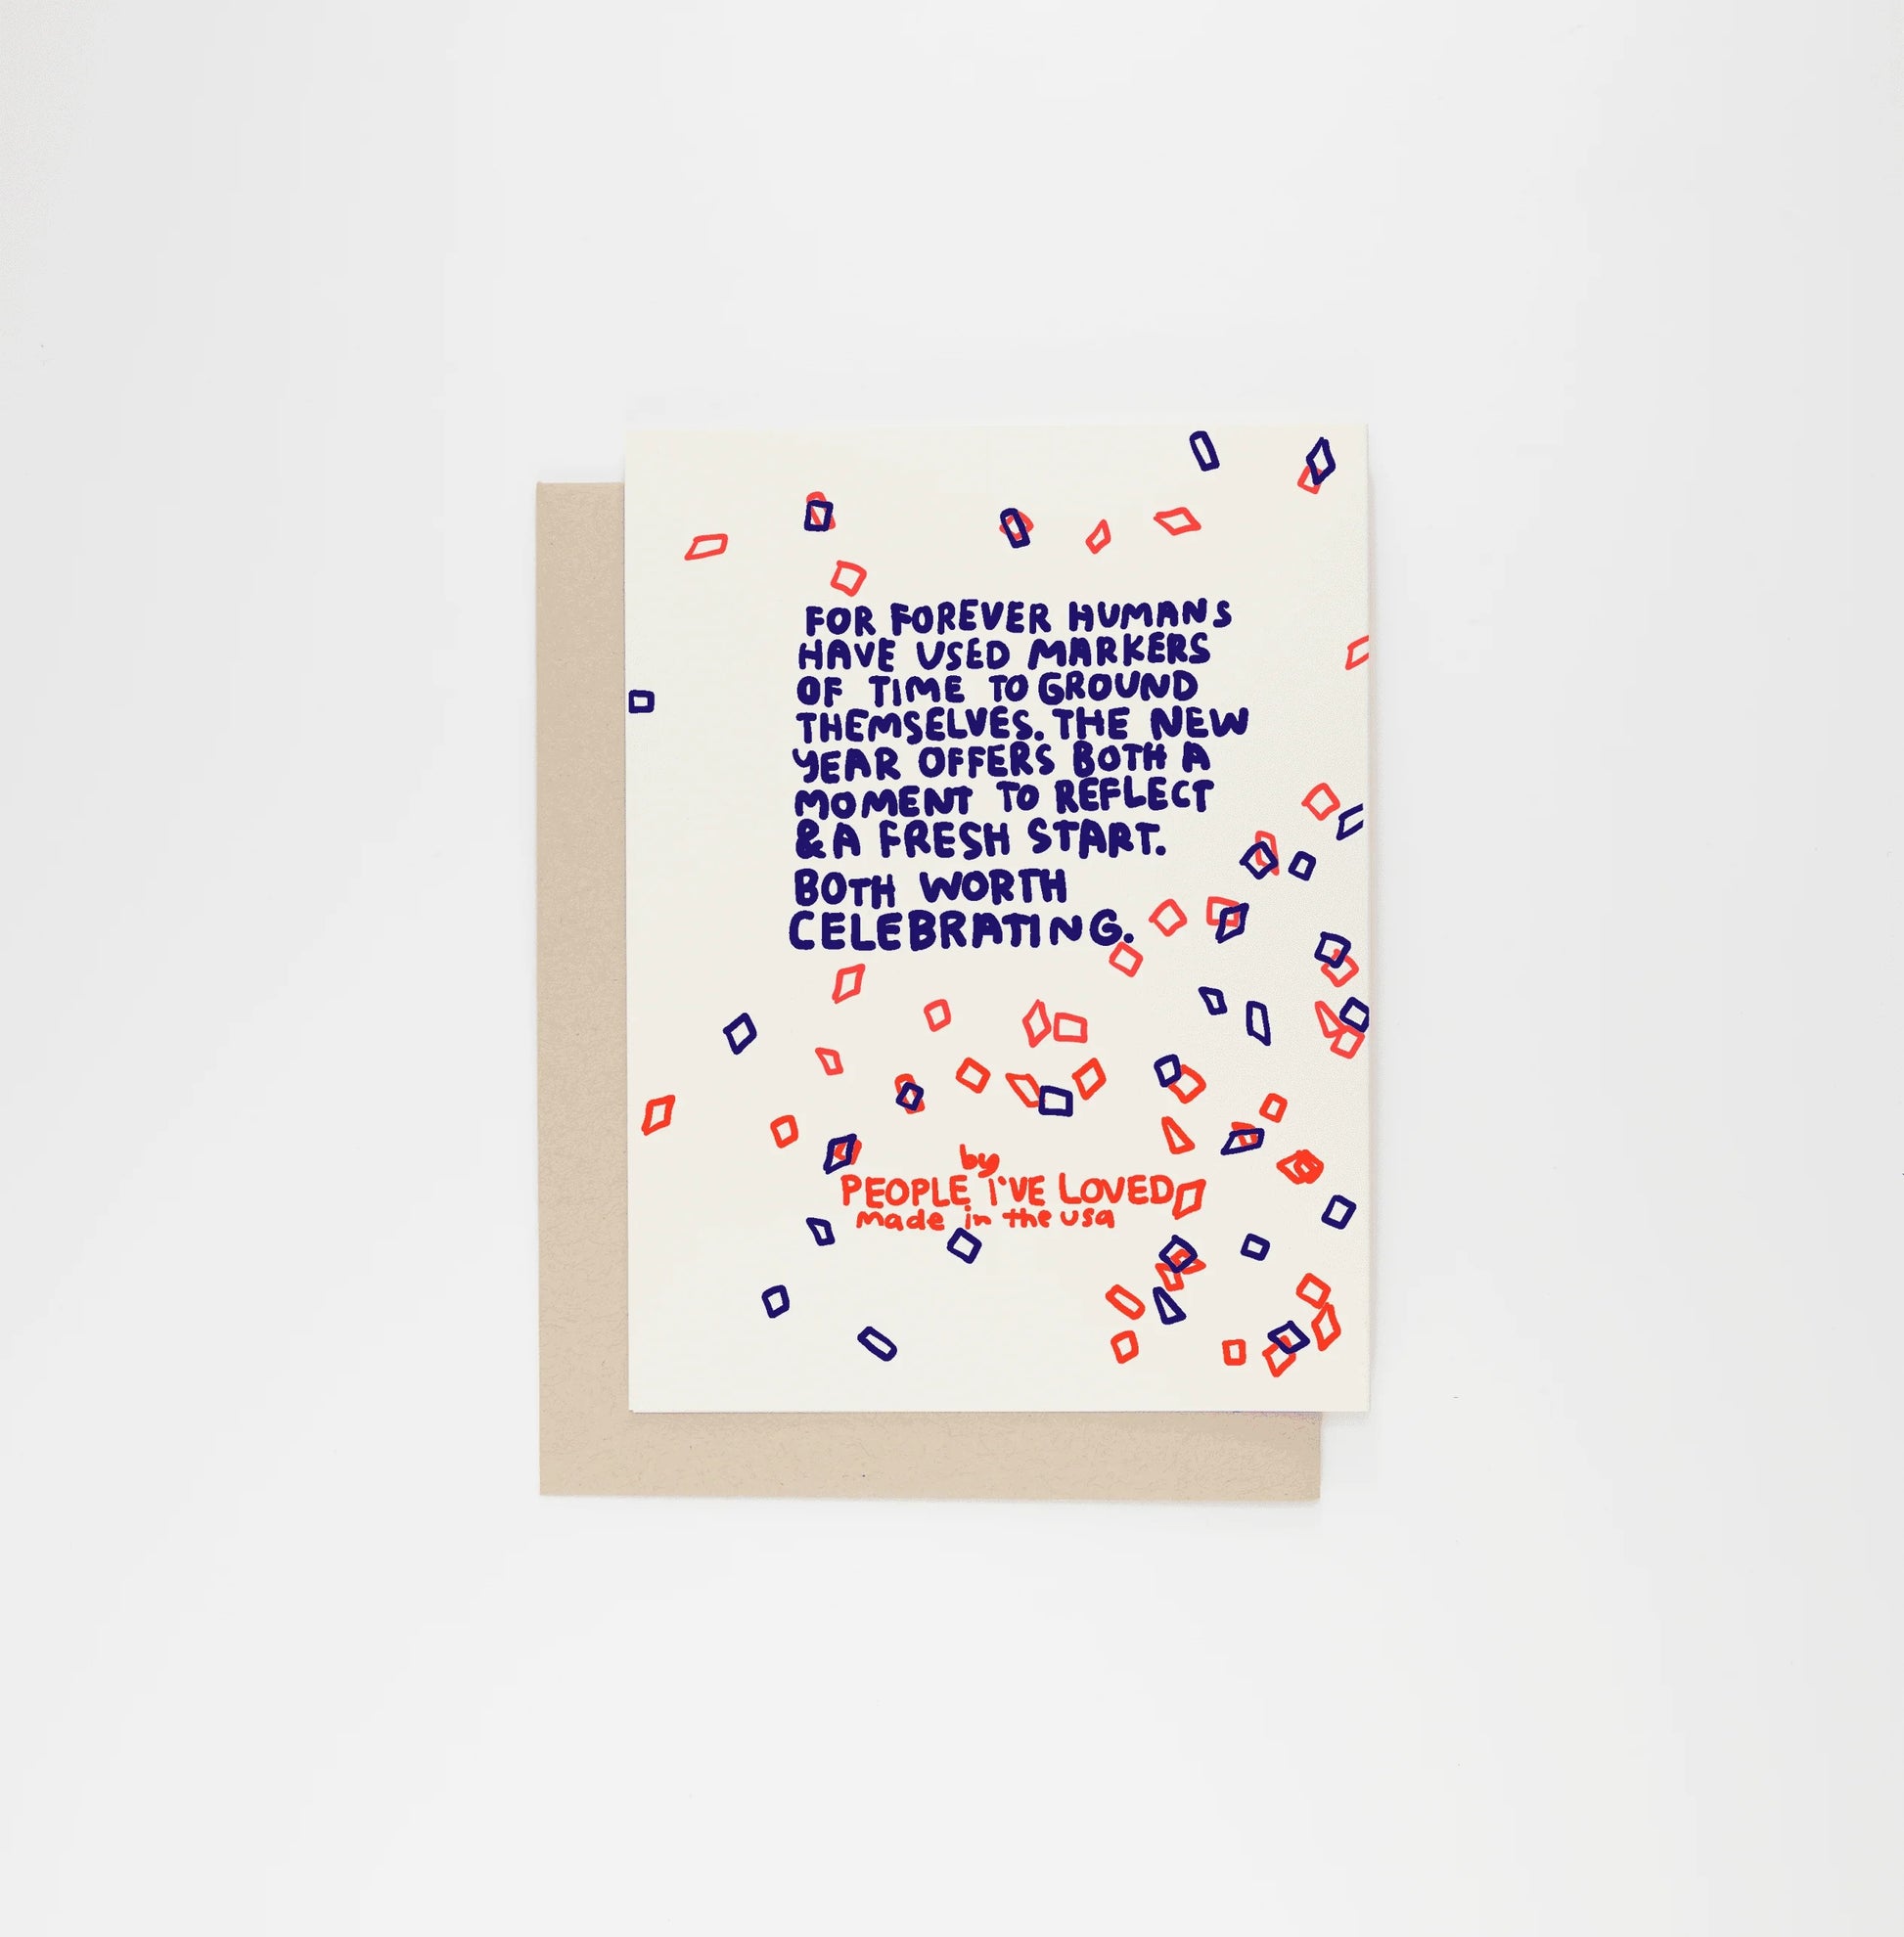 FOR FOREVER HUMANS
HAVE USED MARKERS
OF TIME TO GROUND
THEMSELVES. THE NEW
YEAR OFFERS BOTH A
MOMENT TO REFLECT
& A FRESH START.
BOTH WORTH
CELEBRATING.
by
PEOPLE i'VE LOVED
made in the usa